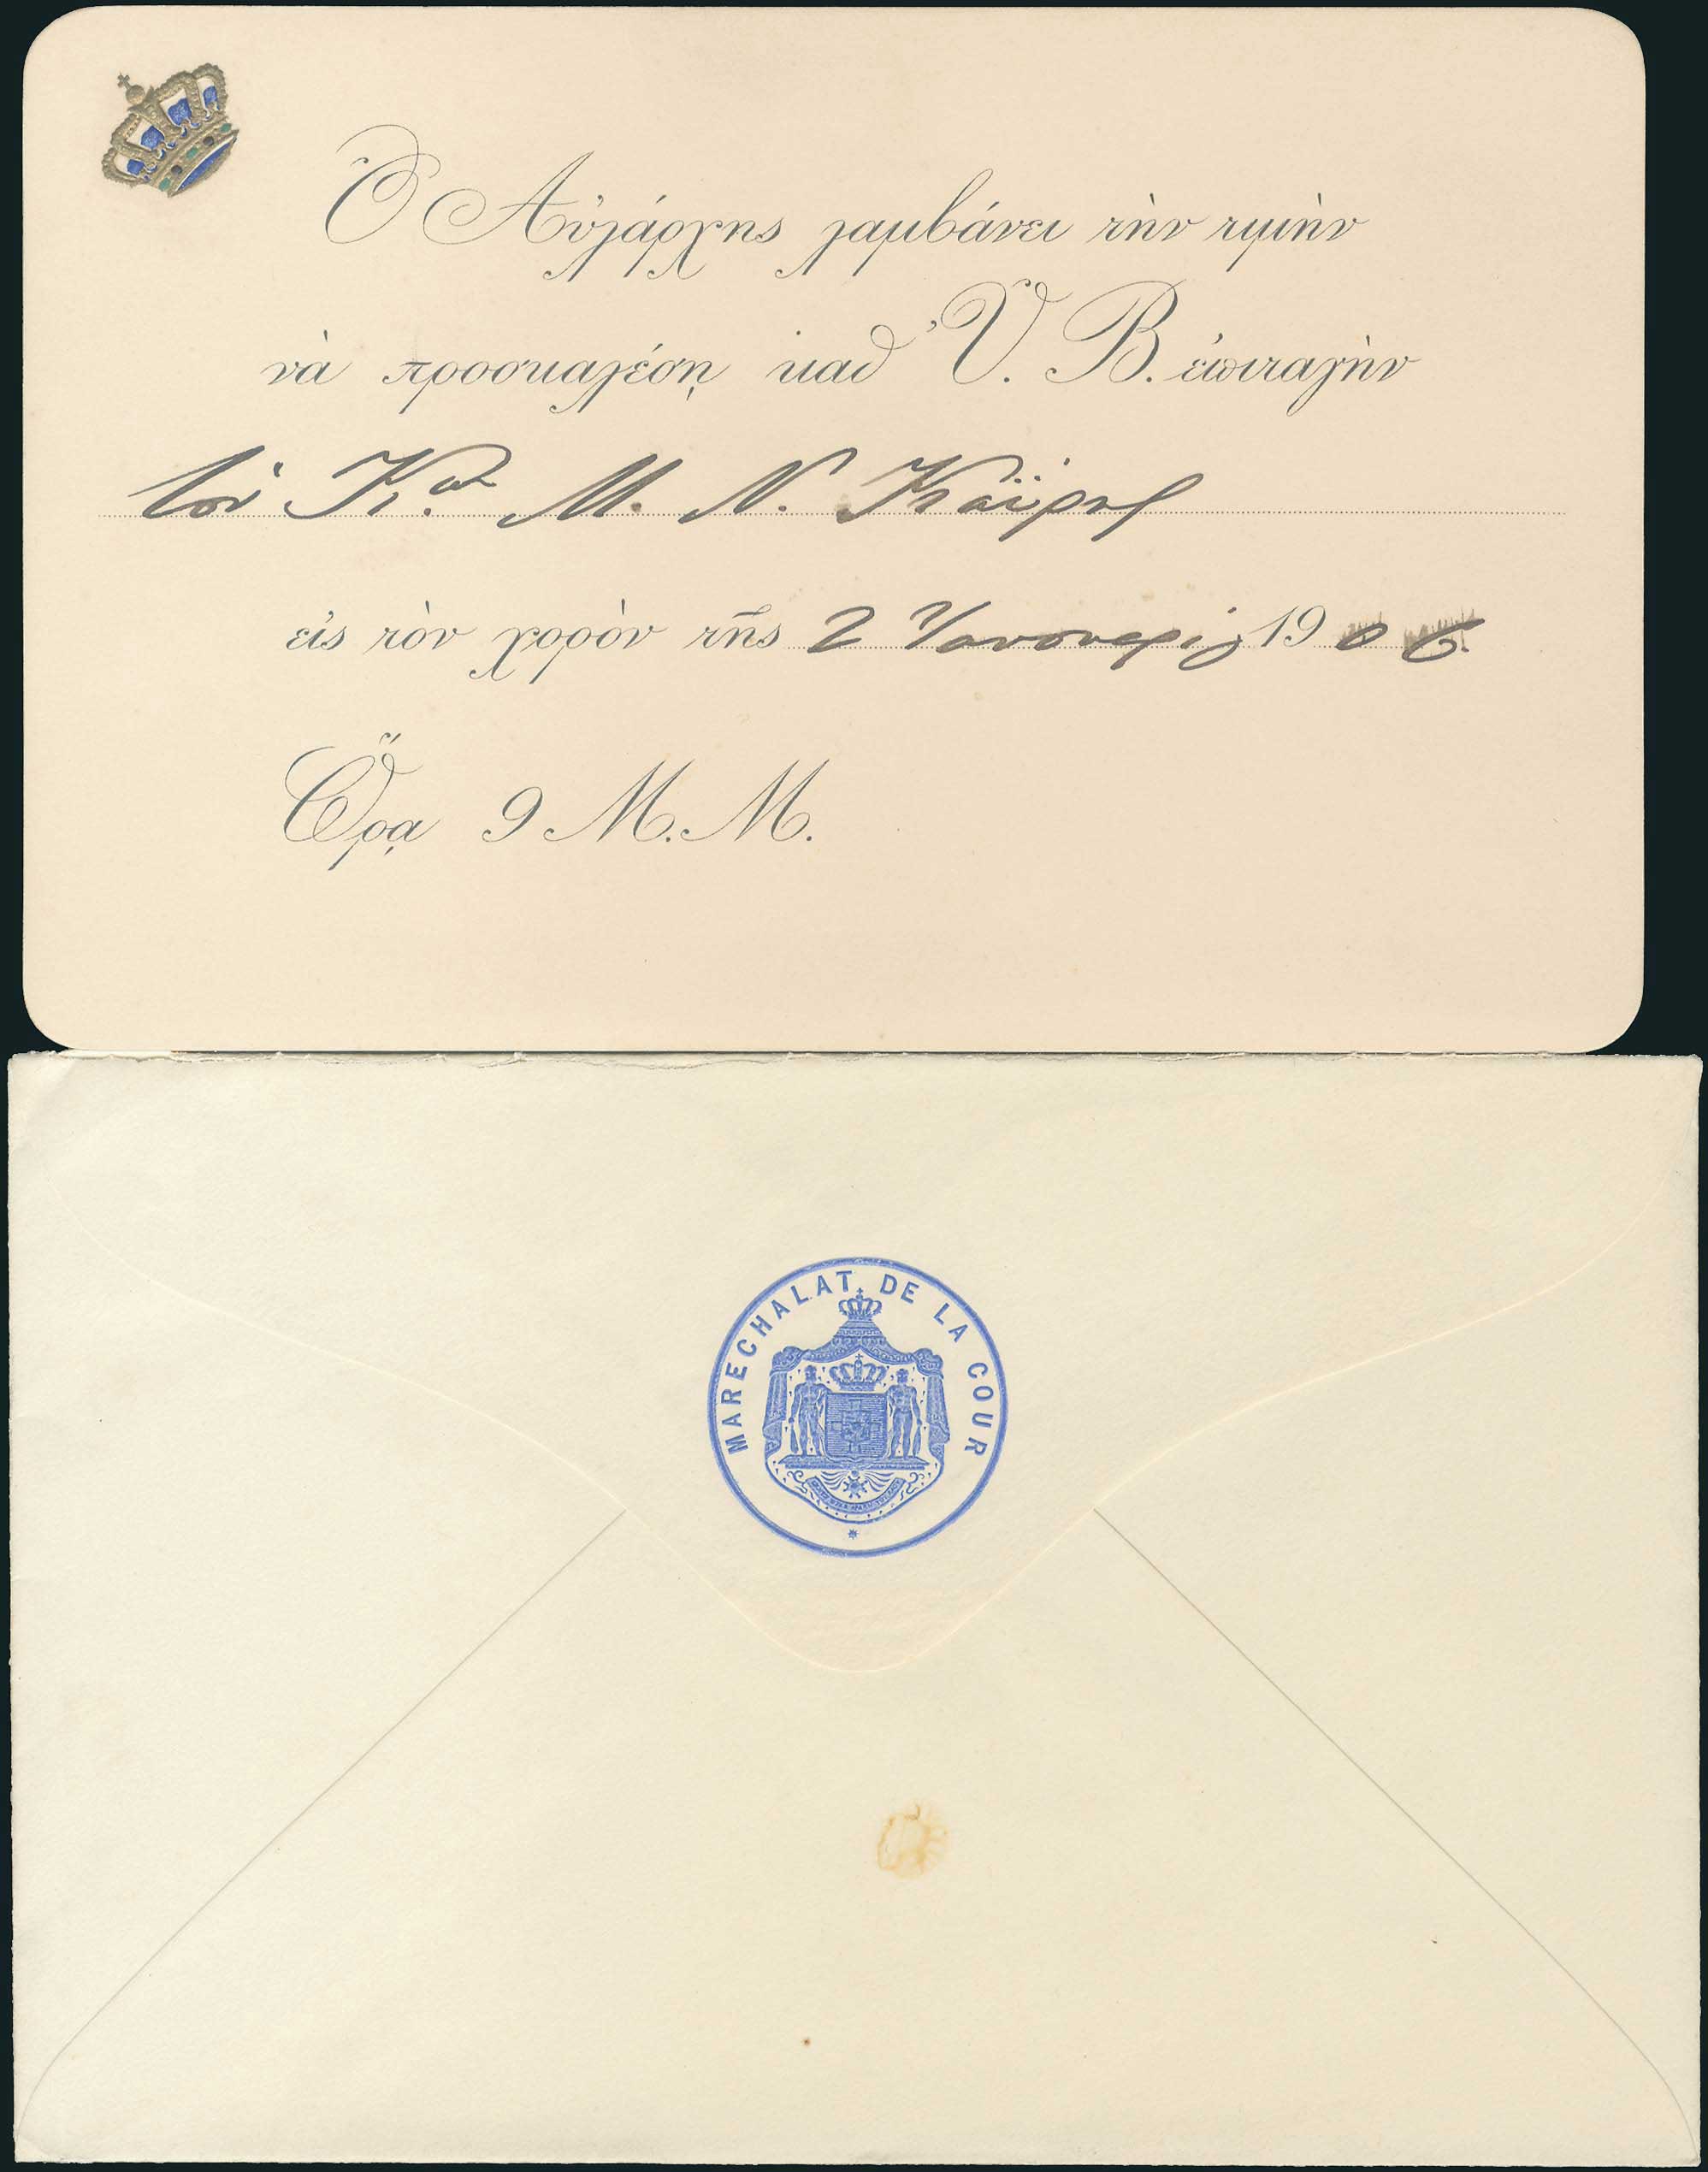 Ὁ Αὐλάρχης λαμβάνει τὴν τιμὴν
νὰ προσκαλέσῃ καθ' Ὑ. Β. ἐπιταγὴν
τὸν Κον Μ. Ν. Καΐρην
εἰς τὸν χορὸν τῆς 2 Ἰανουαρίου 1906.
Ὥρᾳ 9 Μ. Μ.
MARECHALAT DE LA COUR